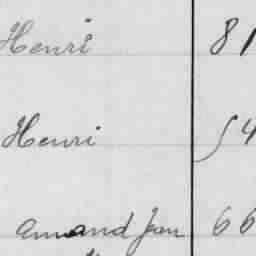 Henri 81
Henri 54
Amand Jean 66